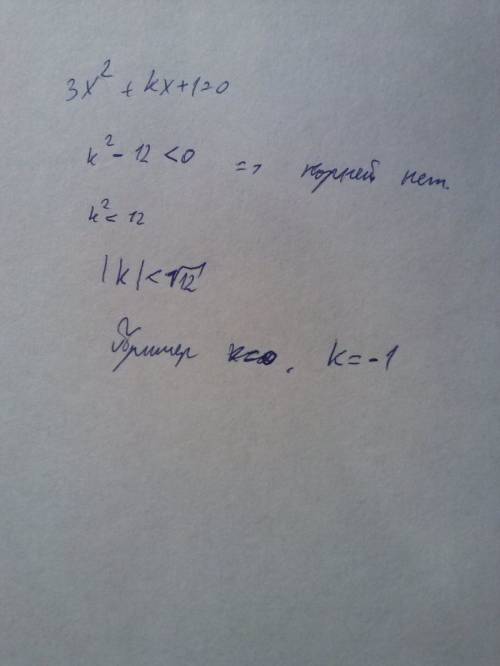 3x² + kx+1=0
k² - 12 <0 => корней нет.
k² < 12
|k| < √12
Пример k=0, k=-1